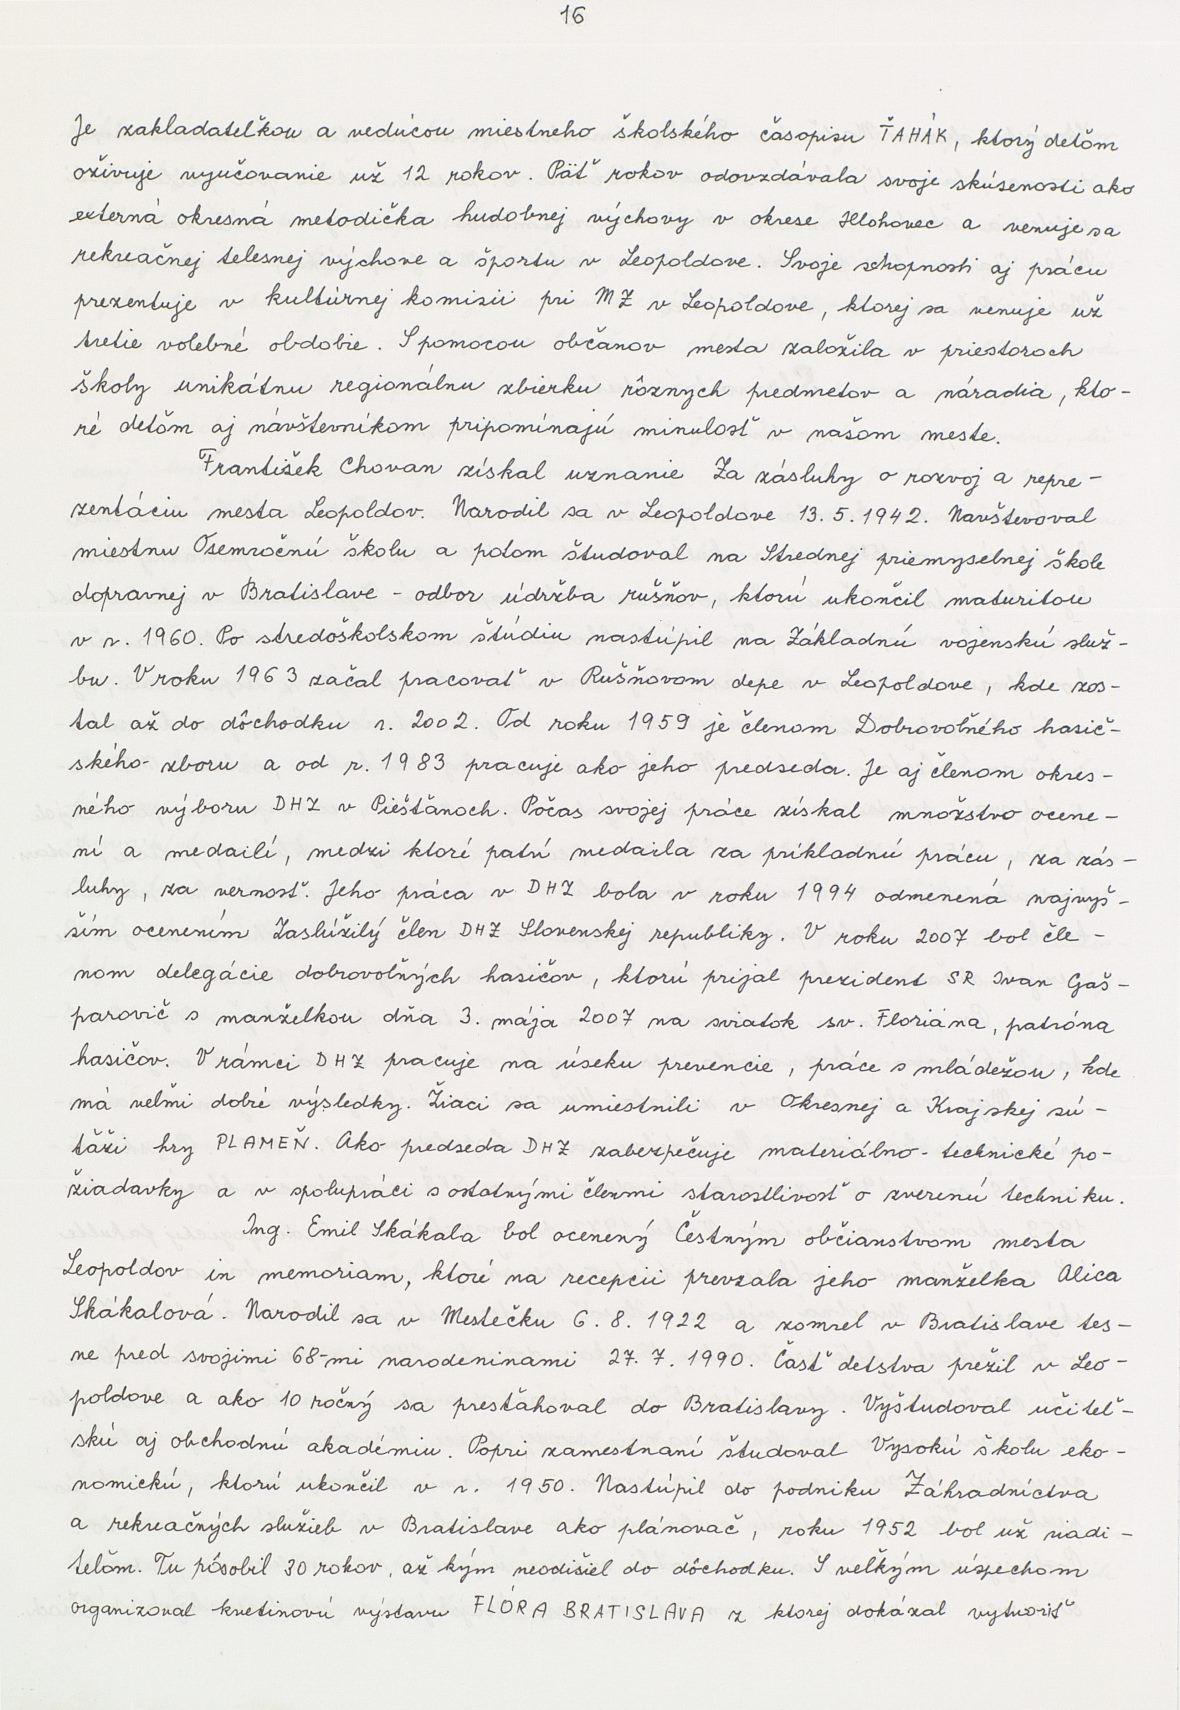 16
Je zakladateľkou a vedúcou miestneho školského časopisu ŤAHÁK, ktorý deťom
oživuje vyučovanie už 12 rokov. Päť rokov odovzdávala svoje skúsenosti ako
externá okresná metodička hudobnej výchovy v okrese Hlohovec a venuje sa
rekreačnej telesnej výchove a športu v Leopoldove. Svoje schopnosti aj prácu
prezentuje v kultúrnej komisii pri MZ v Leopoldove, ktorej sa venuje už
tretie volebné obdobie. S pomocou občanov mesta založila v priestoroch
školy unikátnu regionálnu zbierku rôznych predmetov a náradia, kto-
ré deťom aj návštevníkom pripomínajú minulosť v našom meste.
František Chovan získal uznanie Za zásluhy o rozvoj a repre-
zentáciu mesta Leopoldov. Narodil sa v Leopoldove 13. 5. 1942. Navštevoval
miestnu Osemročnú školu a potom študoval na Strednej priemyselnej škole
dopravnej v Bratislave - odbor údržba rušňov, ktorú ukončil maturitou
v r. 1960. Po stredoškolskom štúdiu nastúpil na Základnú vojenskú služ-
bu. V roku 1963 začal pracovať v Rušňovom depe v Leopoldove, kde zos-
tal až do dôchodku r. 2002. Od roku 1959 je členom Dobrovoľného hasič-
ského zboru a od r. 1983 pracuje ako jeho predseda. Je aj členom okres-
ného výboru DHZ v Piešťanoch. Počas svojej práce získal množstvo ocene-
ní a medailí, medzi ktoré patrí medaila za príkladnú prácu, za zás-
luhy, za vernosť. Jeho práca v DHZ bola v roku 1994 odmenená najvyš-
ším ocenením Zaslúžilý člen DHZ Slovenskej republiky. V roku 2007 bol čle-
nom delegácie dobrovoľných hasičov, ktorú prijal prezident SR Ivan Gaš-
parovič s manželkou dňa 3. mája 2007 na sviatok sv. Floriána, patróna
hasičov. V rámci DHZ pracuje na úseku prevencie, práce s mládežou, kde
má veľmi dobré výsledky. Žiaci sa umiestnili v Okresnej a Krajskej sú-
ťaži hry PLAMEŇ. Ako predseda DHZ zabezpečuje materiálno-technické po-
žiadavky a v spolupráci s ostatnými členmi starostlivosť o zverenú techniku.
Ing. Emil Skákala bol ocenený Čestným občianstvom mesta
Leopoldov in memoriam, ktoré na recepcii prevzala jeho manželka Alica
Skákalová. Narodil sa v Mestečku 6. 8. 1922 a zomrel v Bratislave tes-
ne pred svojimi 68-mi narodeninami 27. 7. 1990. Časť detstva prežil v Leo-
poldove a ako 10 ročný sa presťahoval do Bratislavy. Vyštudoval učiteľ-
skú aj obchodnú akadémiu. Popri zamestnaní študoval Vysokú školu eko-
nomickú, ktorú ukončil v r. 1950. Nastúpil do podniku Záhradníctva
a rekreačných služieb v Bratislave ako plánovač, roku 1952 bol už riadi-
teľom. Tu pôsobil 30 rokov, až kým neodišiel do dôchodku. S veľkým úspechom
organizoval kvetinovú výstavu FLÓRA BRATISLAVA z ktorej dokázal vytvoriť